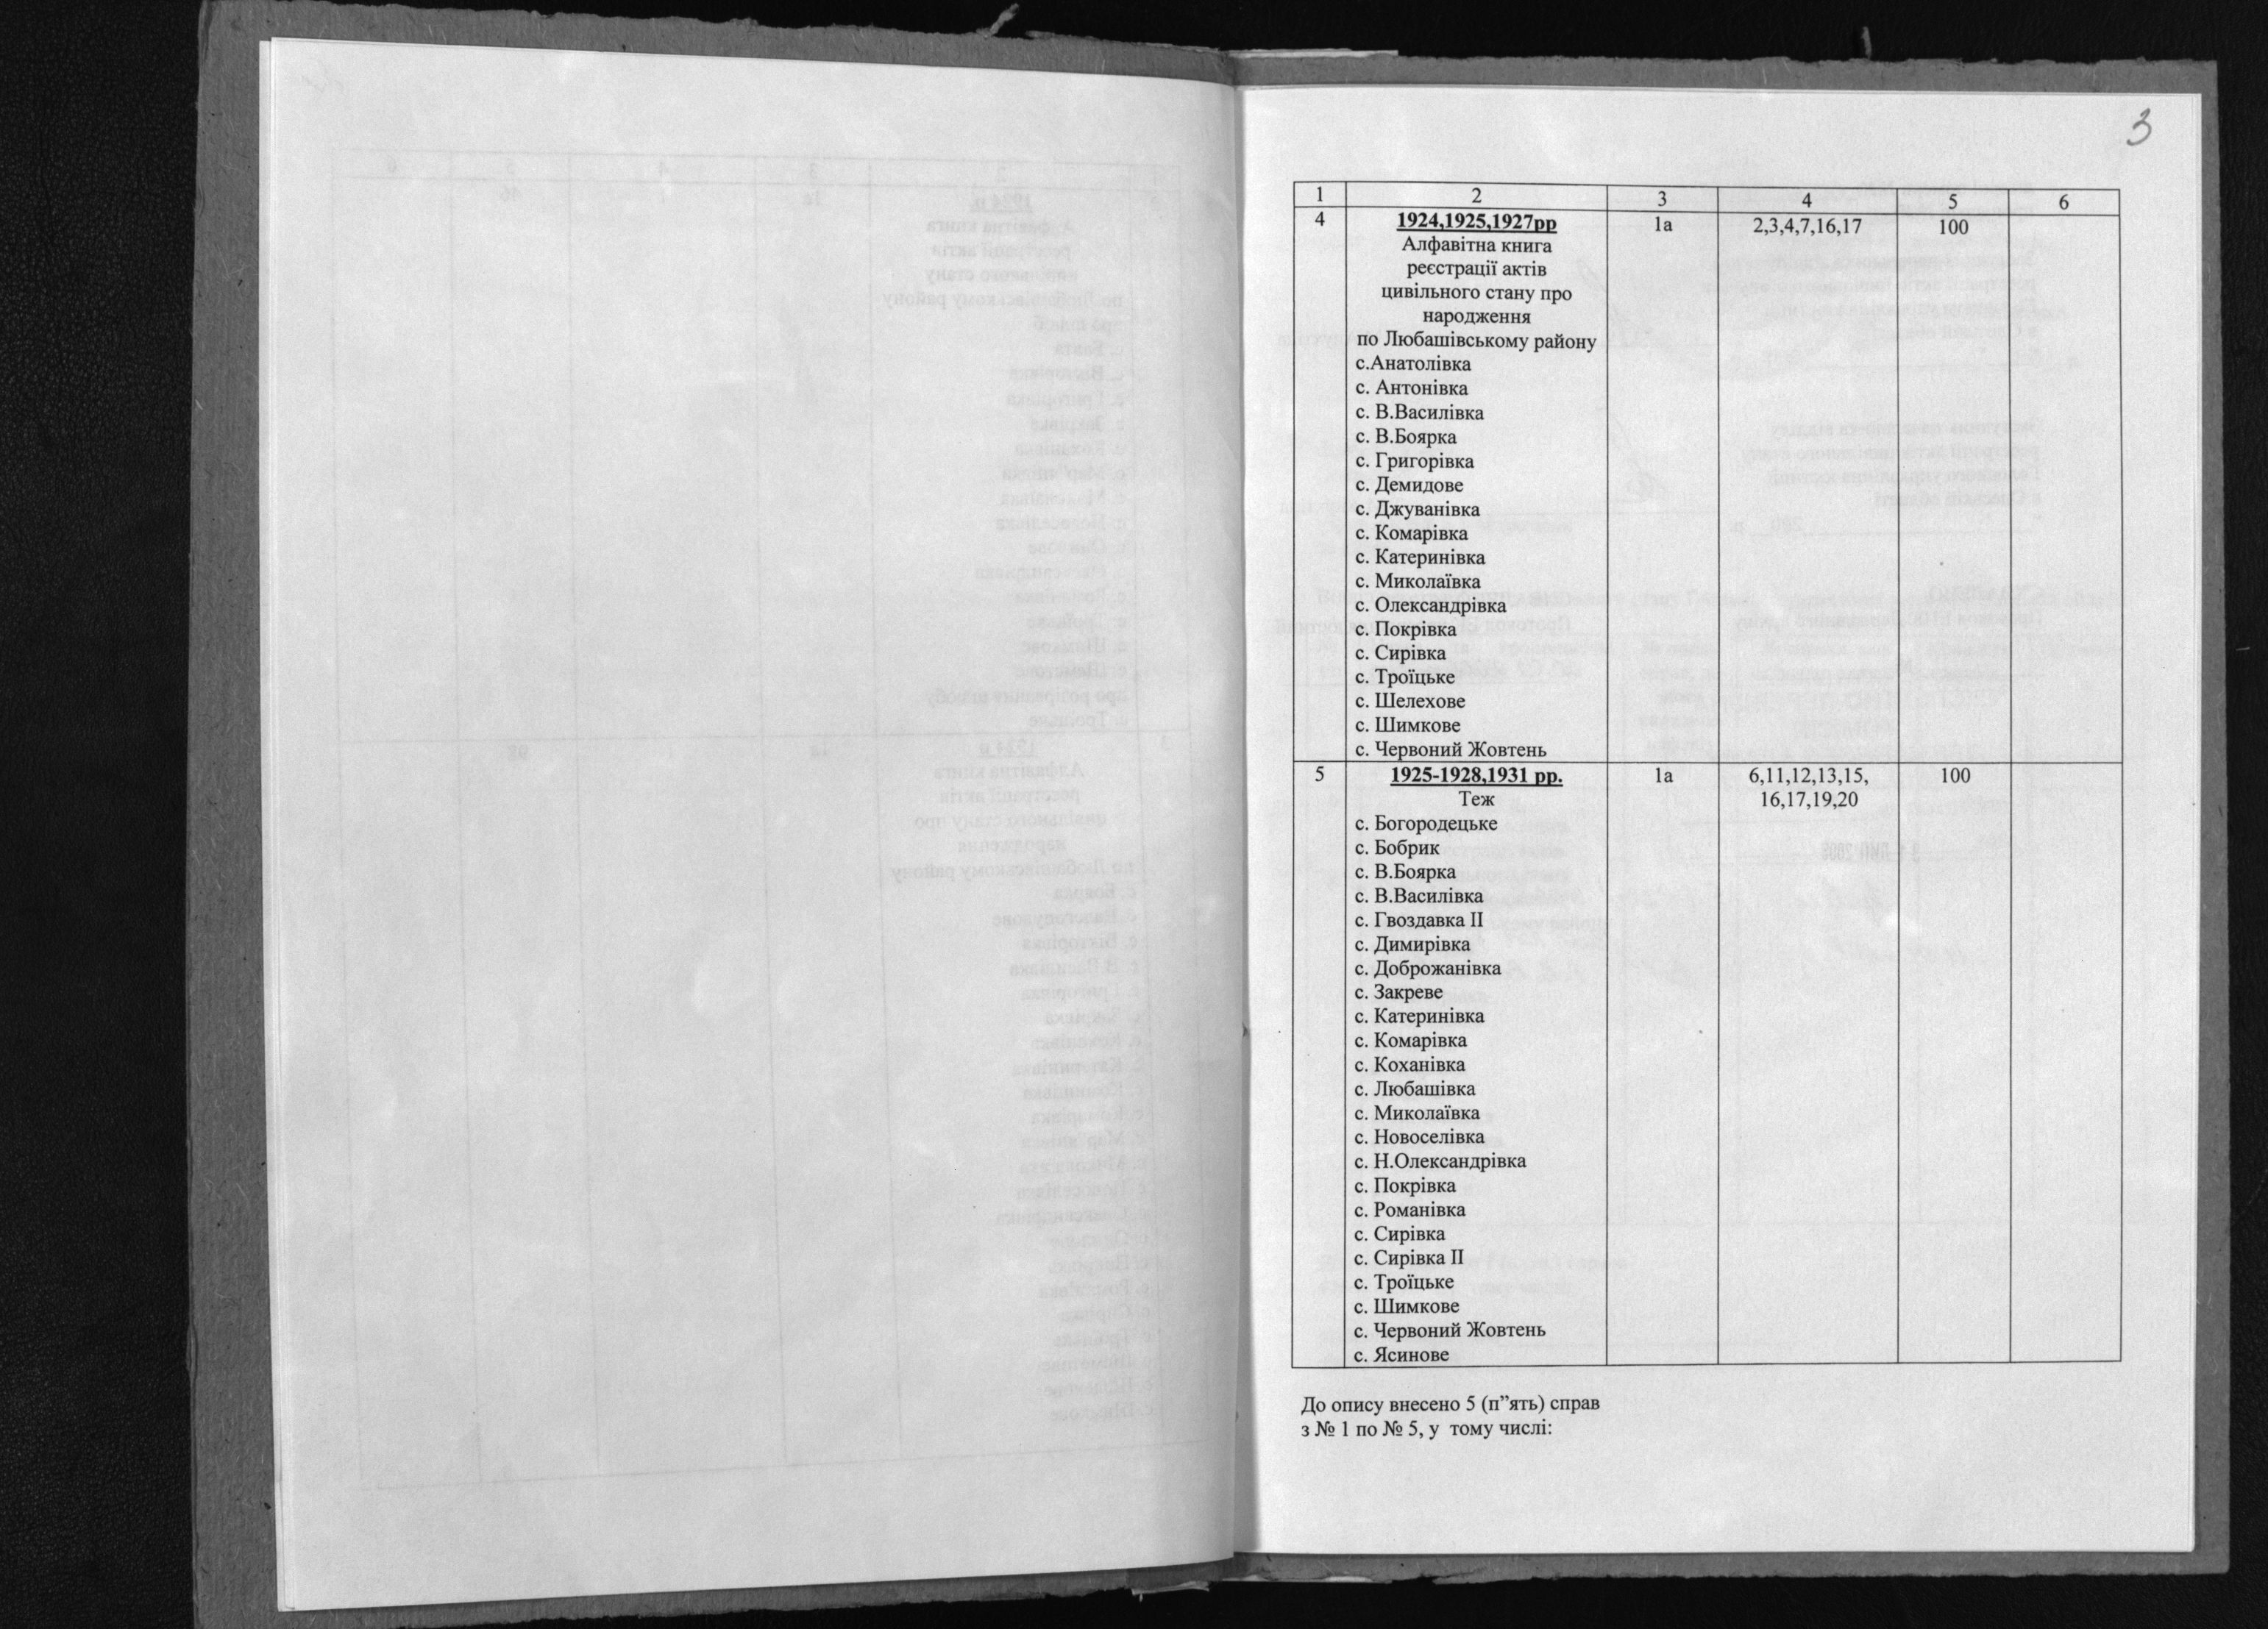 3
1 2 3 4 5 6
4 1924,1925,1927рр 1а 2,3,4,7,16,17 100
Алфавітна книга
реєстрації актів
цивільного стану про
народження
по Любашівському району
с.Анатолівка
с. Антонівка
с. В.Василівка
с. В.Боярка
с. Григорівка
с. Демидове
с. Джуванівка
с. Комарівка
с. Катеринівка
с. Миколаївка
с. Олександрівка
с. Покрівка
с. Сирівка
с. Троїцьке
с. Шелехове
с. Шимкове
с. Червоний Жовтень
5 1925-1928,1931 рр. 1а 6,11,12,13,15, 100
Теж 16,17,19,20
с. Богородецьке
с. Бобрик
с. В.Боярка
с. В.Василівка
с. Гвоздавка ІІ
с. Димирівка
с. Доброжанівка
с. Закреве
с. Катеринівка
с. Комарівка
с. Коханівка
с. Любашівка
с. Миколаївка
с. Новоселівка
с. Н.Олександрівка
с. Покрівка
с. Романівка
с. Сирівка
с. Сирівка ІІ
с. Троїцьке
с. Шимкове
с. Червоний Жовтень
с. Ясинове
До опису внесено 5 (п”ять) справ
з № 1 по № 5, у тому числі: